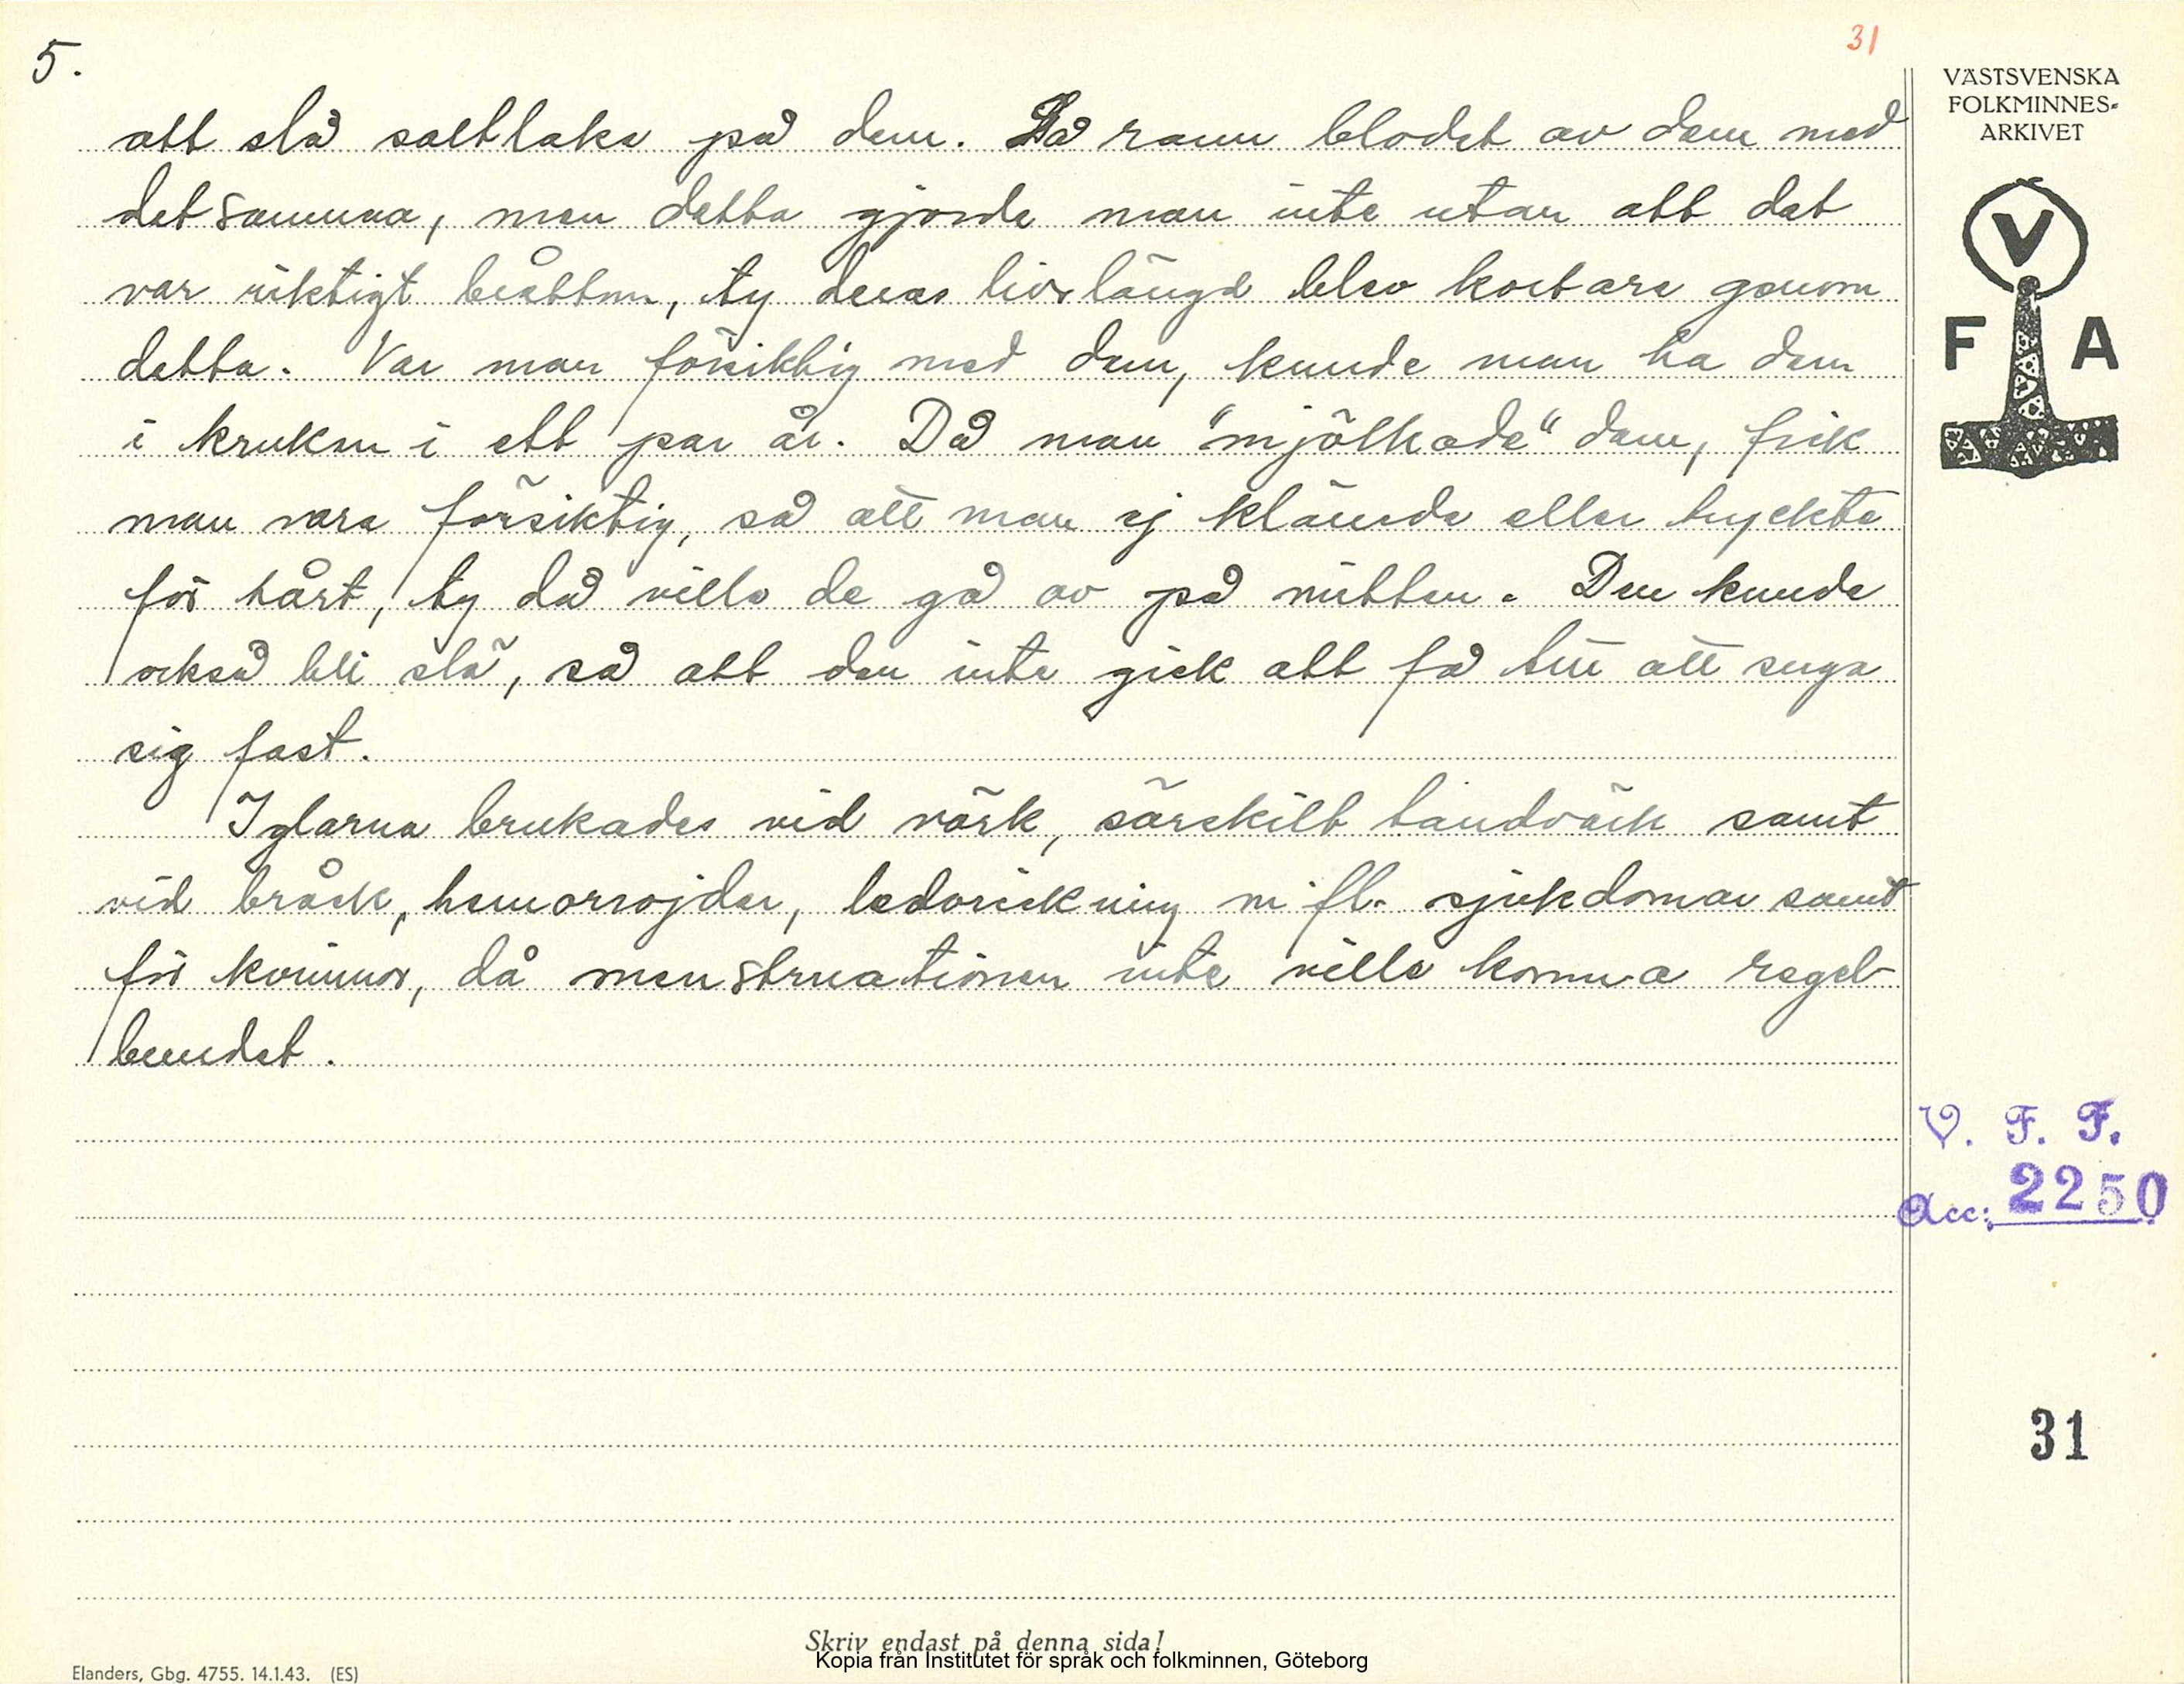 5.
31
att slå saltlake på dem. Då rann blodet av dem med
det samma, men detta gjorde man inte utan att det
var riktigt bråttom, ty deras livslängd blev kortare genom
detta. Var man försiktig med dem, kunde man ha dem
i krukan i ett par år. Då man "mjölkade" dem, fick
man vara försiktig, så att man ej klämde eller tryckte
för hårt, ty då ville de gå av på mitten. Den kunde
också bli slö, så att den inte gick att få till att suga
sig fast.
Iglarna brukades vid värk, särskilt tandvärk samt
vid bråck, hemorrojder, ledvrickning m. fl. sjukdomar samt
för kvinnor, då menstruationen inte ville komma regel-
bundet.
VÄSTSVENSKA
FOLKMINNES-
ARKIVET
V
F A
V. F. F.
Acc: 2250
31
Skriv endast på denna sida!
Kopia från Institutet för språk och folkminnen, Göteborg
Elanders, Gbg. 4755. 14.1.43. (ES)